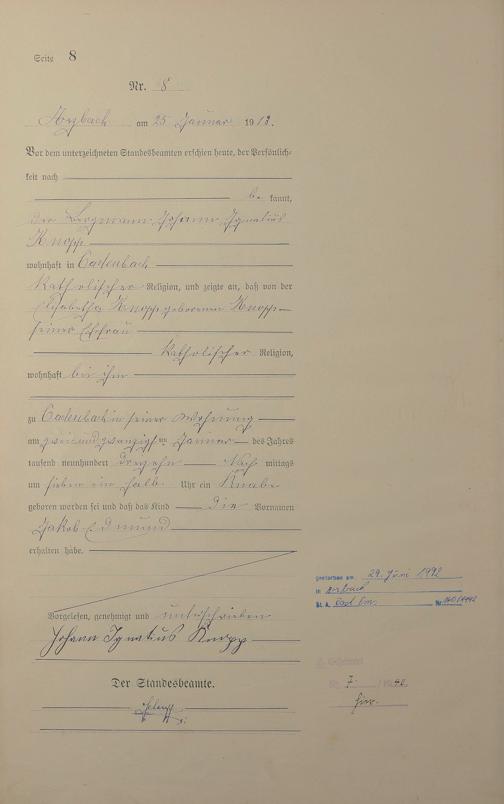 Seite 8
Nr. 8
Arzbach am 25 Januar 1913.
Vor dem unterzeichneten Standesbeamten erschien heute, der Persönlich-
keit nach
be kannt,
der Bergmann Johann Ignatius
Knopp
wohnhaft in Cadenbach
Katholischer Religion, und zeigte an, daß von der
Elisabetha Knopp geborenen Knopp
seiner Ehefrau
Katholischer Religion,
wohnhaft bei ihm
zu Cadenbach in seiner Wohnung
am zweiundzwanzigsten Januar des Jahres
tausend neunhundert dreizehn Nach mittags
um sieben ein halb Uhr ein Knabe
geboren worden sei und daß das Kind die Vornamen
Jakob Edmund
erhalten habe.
Vorgelesen, genehmigt und unterschrieben
Johann Ignatius Knopp
Der Standesbeamte.
gestorben am 29. Juni 1992
in
St. A. Nr.
7.